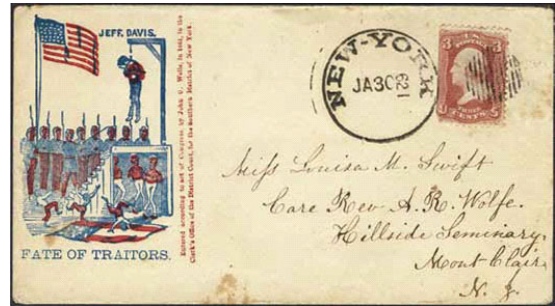 JEFF. DAVIS.
FATE OF TRAITORS.
Entered according to act of Congress, by John G. Wells, in 1861, in the
Clerk's Office of the District Court, for the Southern District of New York.
NEW-YORK
JA 30
3 3
U.S. POSTAGE
THREE
CENTS
Miss Louisa M. Swift
Care Rev A. R. Wolfe.
Hillside Seminary,
Mont Clair,
N. J.